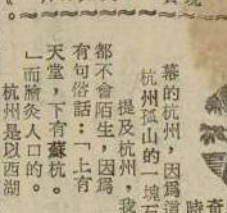 奇
時
幕的杭州，因爲道
杭州孤山的一塊石
提及杭州，我
都不會陌生，因爲
有句俗話：「上有
天堂，下有蘇杭。
」而膾炙人口的。
杭州是以西湖